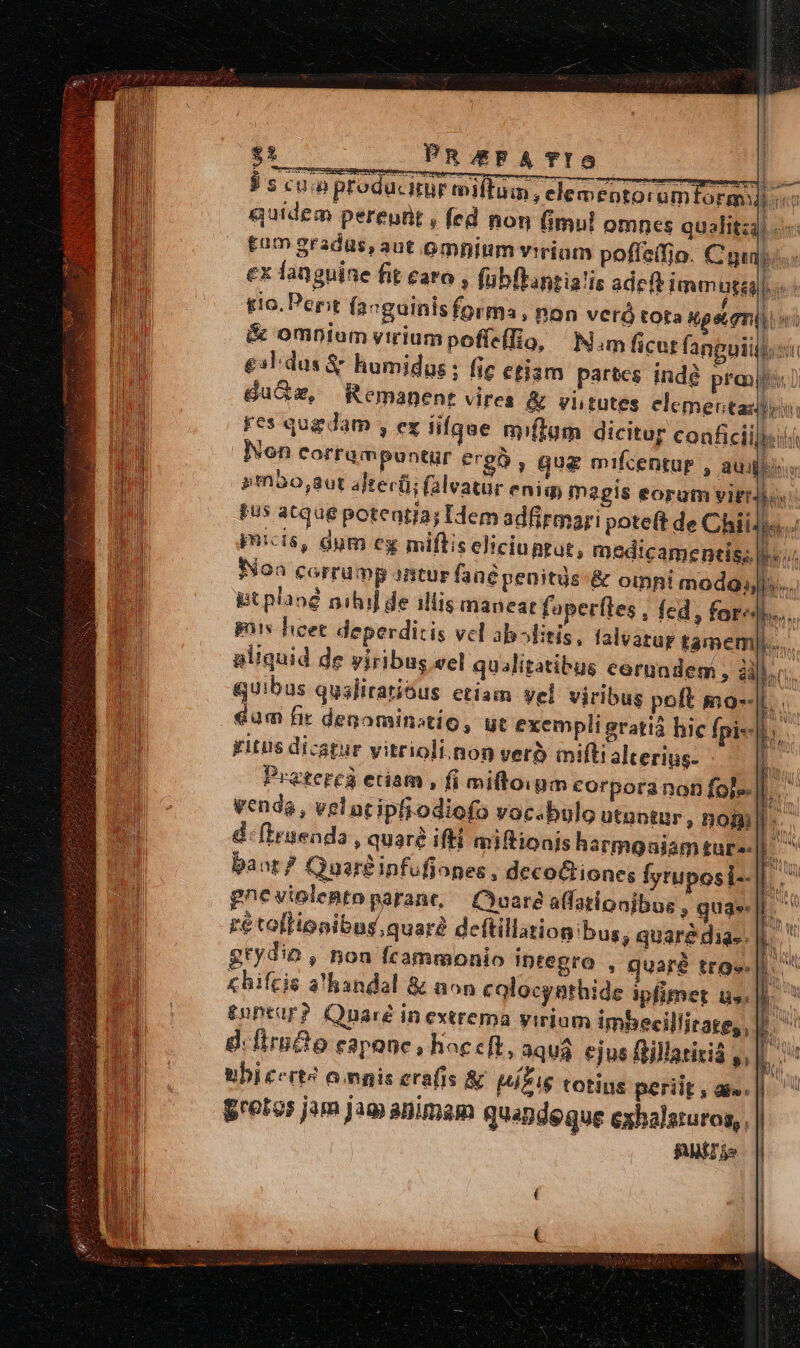 52 PRÆFATIO
s cum producitur mistum, elementorum form
quidem pereunt, sed non simul omnes qualita
tum gradus, aut omnium virium possessio. Cum
ex sanguine fit caro, substantialis adest immuta
tio. Perit sanguinis forma, non verò tota
& omnium virium possessio, Nam sicut sangui
calidus & humidus; sic etiam partes indè pro
ductæ, Remanent vires & virtutes elementa
res quædam, ex iisque mistum dicitur confici
Non corrumpuntur ergò, quæ miscentur, au
ambo, aut alterū; salvatur enim magis eorum vir
tus atque potentia; Idem adfirmari potest de Chi
micis, dum ex mistis eliciuntut, medicamentis.
Non corrumpuntur sanè penitùs & omni modo,
ut planè nihil de illis maneat superstes, sed, for
mis licet deperditis vel abolitis, salvatur tamem
aliquid de viribus vel qualitatibus eorundem, à
quibus qualitatibus etiam vel viribus post mo-
dum fit denominatio, ut exempli gratiâ hic spi-
ritus dicatur vitrioli non verò misti alterius.
Prætereà etiam, si mistorum corpora non sol-
venda, vel ut ipsi odioso vocabulo utuntur, non
destruenda, quarè isti mistionis harmoniam tur-
bant? Quarè infusiones, decoctiones syrupos i-
gne violento parant, Quarè assationibus, qua-
rè tostionibus, quarè destillationibus, quarè dia-
grydio, non scammonio integro, quarè tro-
chiscis alhandal & non colocynthide ipsimet u-
tuntur? Quarè in extrema virium imbecillitate,
destructo capone, hoc est, aquâ ejus stillatitiâ,
ubi certè omnis crasis & μίξις totius periit, æ-
grotos jam jam animam quandoque exhalaturos,
nutri-